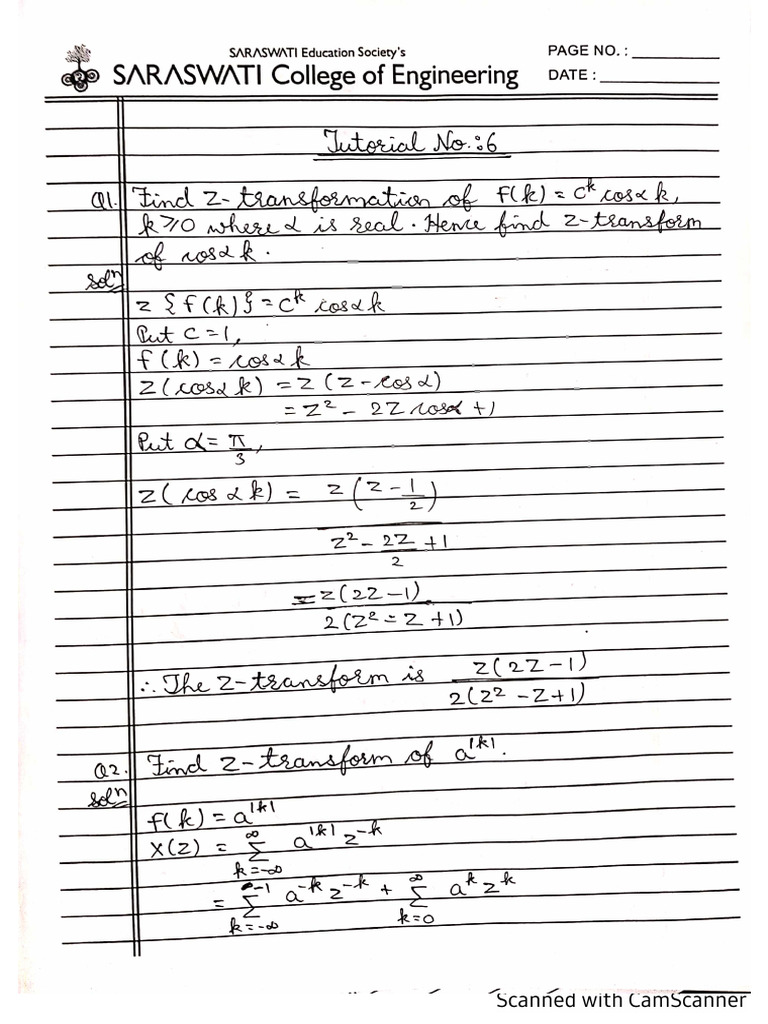 SARASWATI Education Society's
SARASWATI College of Engineering
PAGE NO. :
DATE :
Tutorial No.:6
Q1. Find Z-transformation of f(k) = c^k cosαk,
k≥0 where α is real. Hence find Z-transform
of cosαk.
Solⁿ
z {f(k)} = c^k cosαk
Put c=1,
f(k) = cosαk
Z(cosαk) = Z(Z-cosα)
= Z² - 2Z cosα +1
Put α = π/3,
Z(cosαk) = Z(Z-1/2)
Z² - 2Z/2 +1
= Z(2Z-1)
2(Z² = Z +1)
∴ The Z-transform is Z(2Z-1)
2(Z² -Z+1)
Q2. Find Z-transform of a^|k|.
Solⁿ
f(k) = a^|k|
X(Z) = ∞Σk=-∞ a^|k| z^-k
= -1Σk=-∞ a^-k z^-k + ∞Σk=0 a^k z^k
Scanned with CamScanner